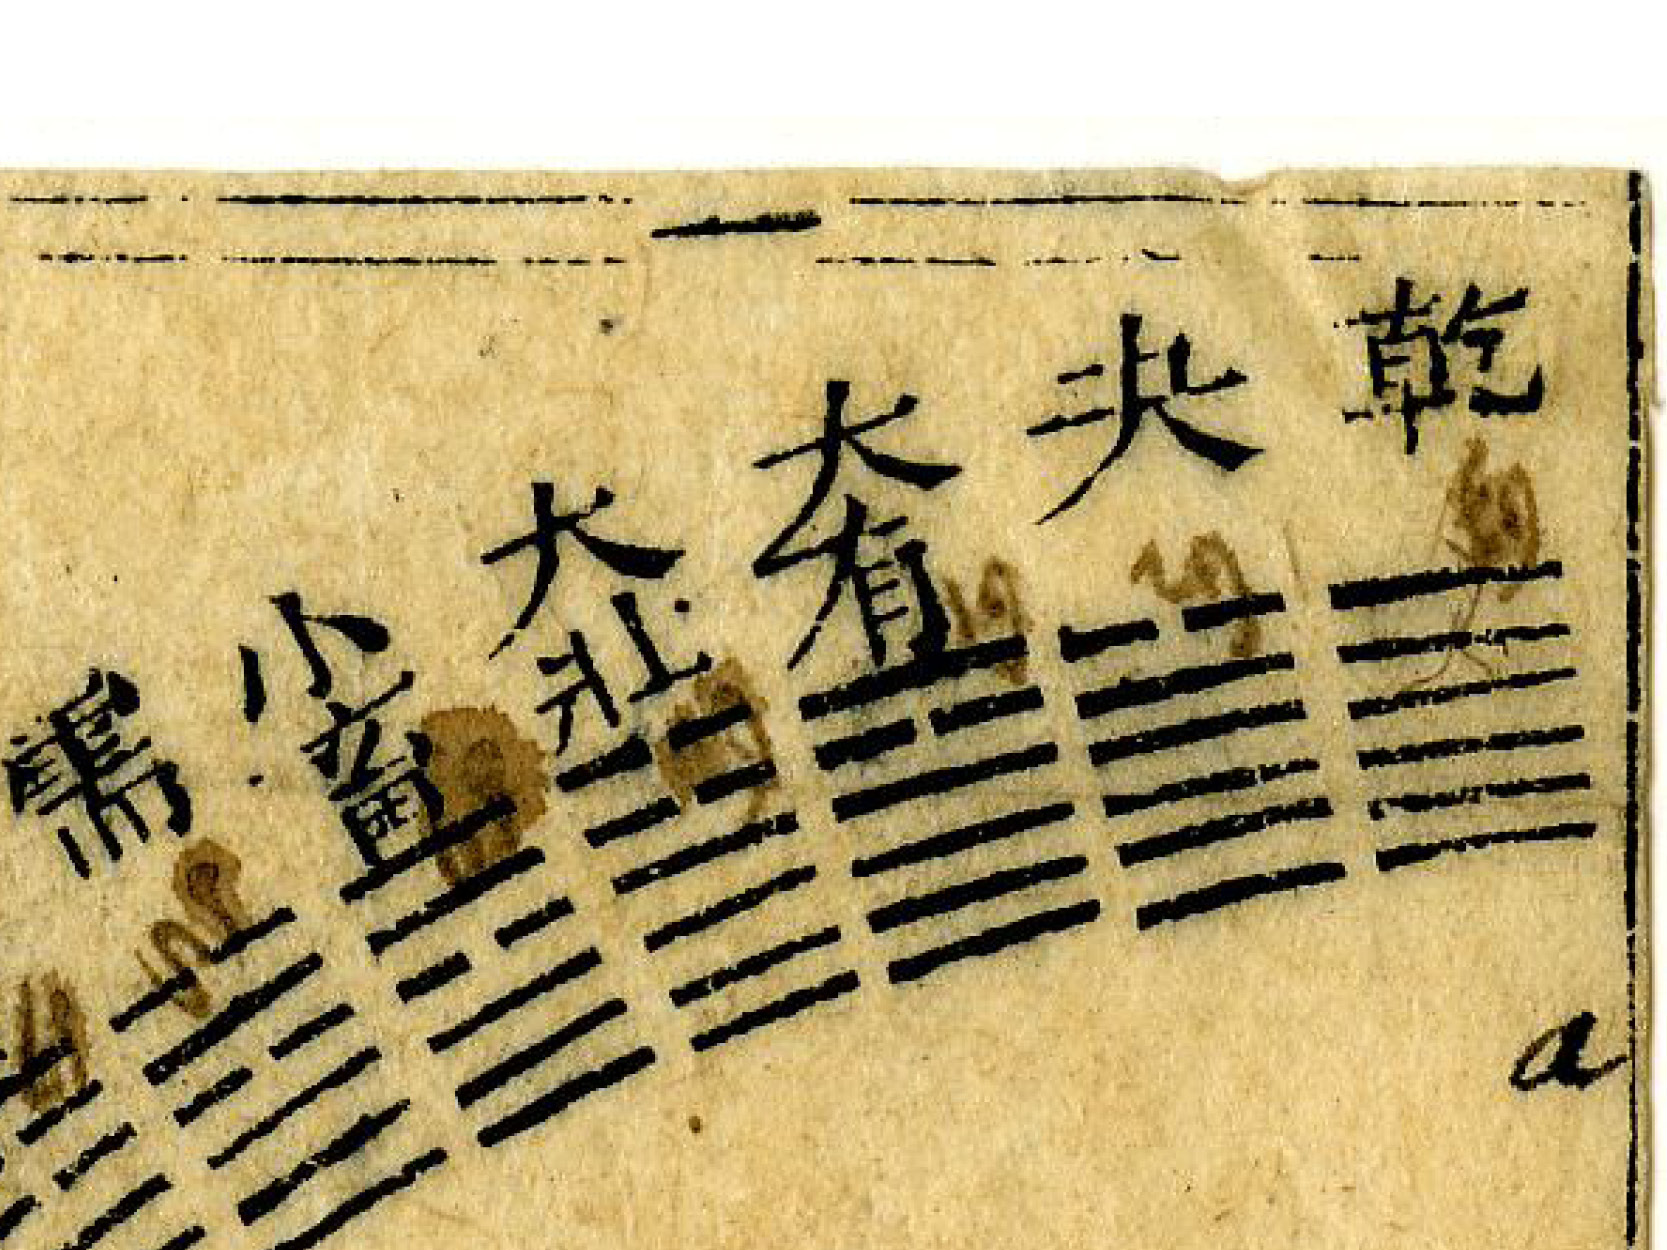 乾
夬
大有
大壯
小畜
需
a